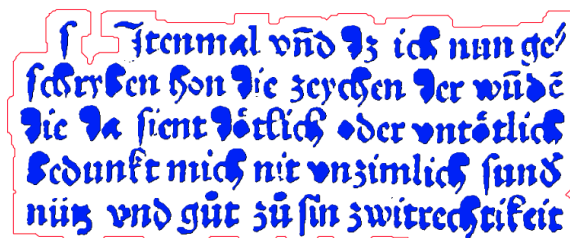 ſ Itenmal vn̄d dz ich nun ge⸗
ſchryben hon die zeychen der wūdē
die da ſient dôtlich oder vntôtlich
bedunkt mich nit vnzimlich ſund̛
nütz vnd gůt zů ſin zwitrechtikeit